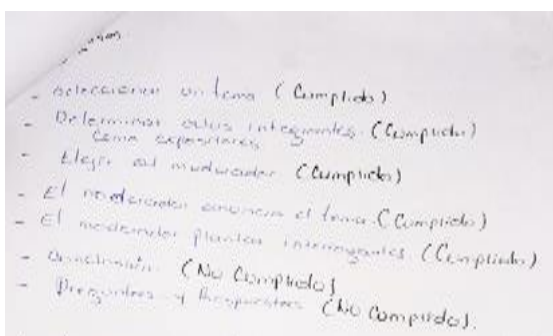 - Seleccionar un tema (Cumplido)
- Determinar a los integrantes (Cumplido)
como expositores
- Elegir al moderador (Cumplido)
- El moderador anuncia el tema (Cumplido)
- El moderador plantea interrogantes (Cumplido)
- (No Cumplido)
- Preguntas y Respuestas (No Cumplido).